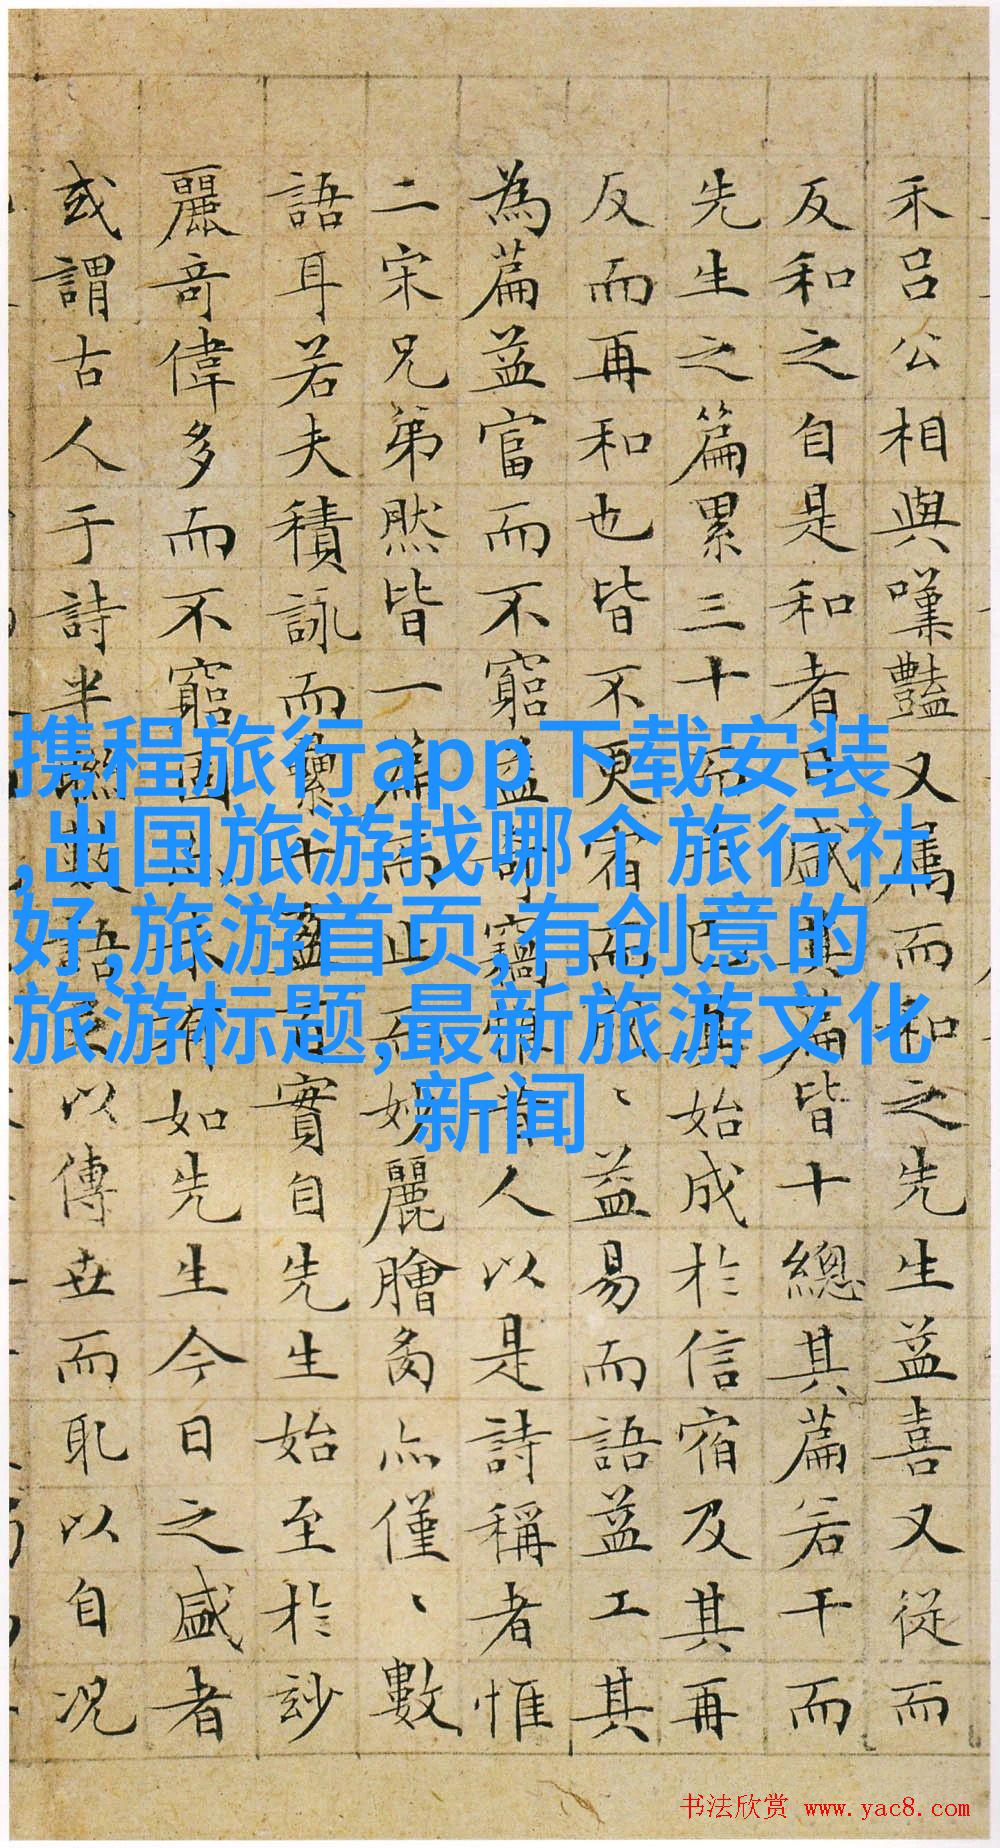 禾呂公相與嘆豔又屬而和之先生益喜又從而
反和之自是和者咸其篇皆十總其篇若干而
先生之篇累三十而已其始成於信宿及其再
反而再和也皆不更宿而成、益易而語益工其
為篇益富而不窮益奇竊恨昔人以是詩稱者惟
二宋兄弟然皆一篇而止而妙麗膾炙亦僅、數
語耳若夫積詠而累十盈百實自先生始至於玅
麗奇偉多而不窮固未有如先生今日之盛者
或謂古人于詩半聯數語足以傳世而耻以自況
携程旅行app下载安装
,出国旅游找哪个旅行社
好,旅游首页,有创意的
旅游标题,最新旅游文化
新闻
书法欣赏 www.yac8.com